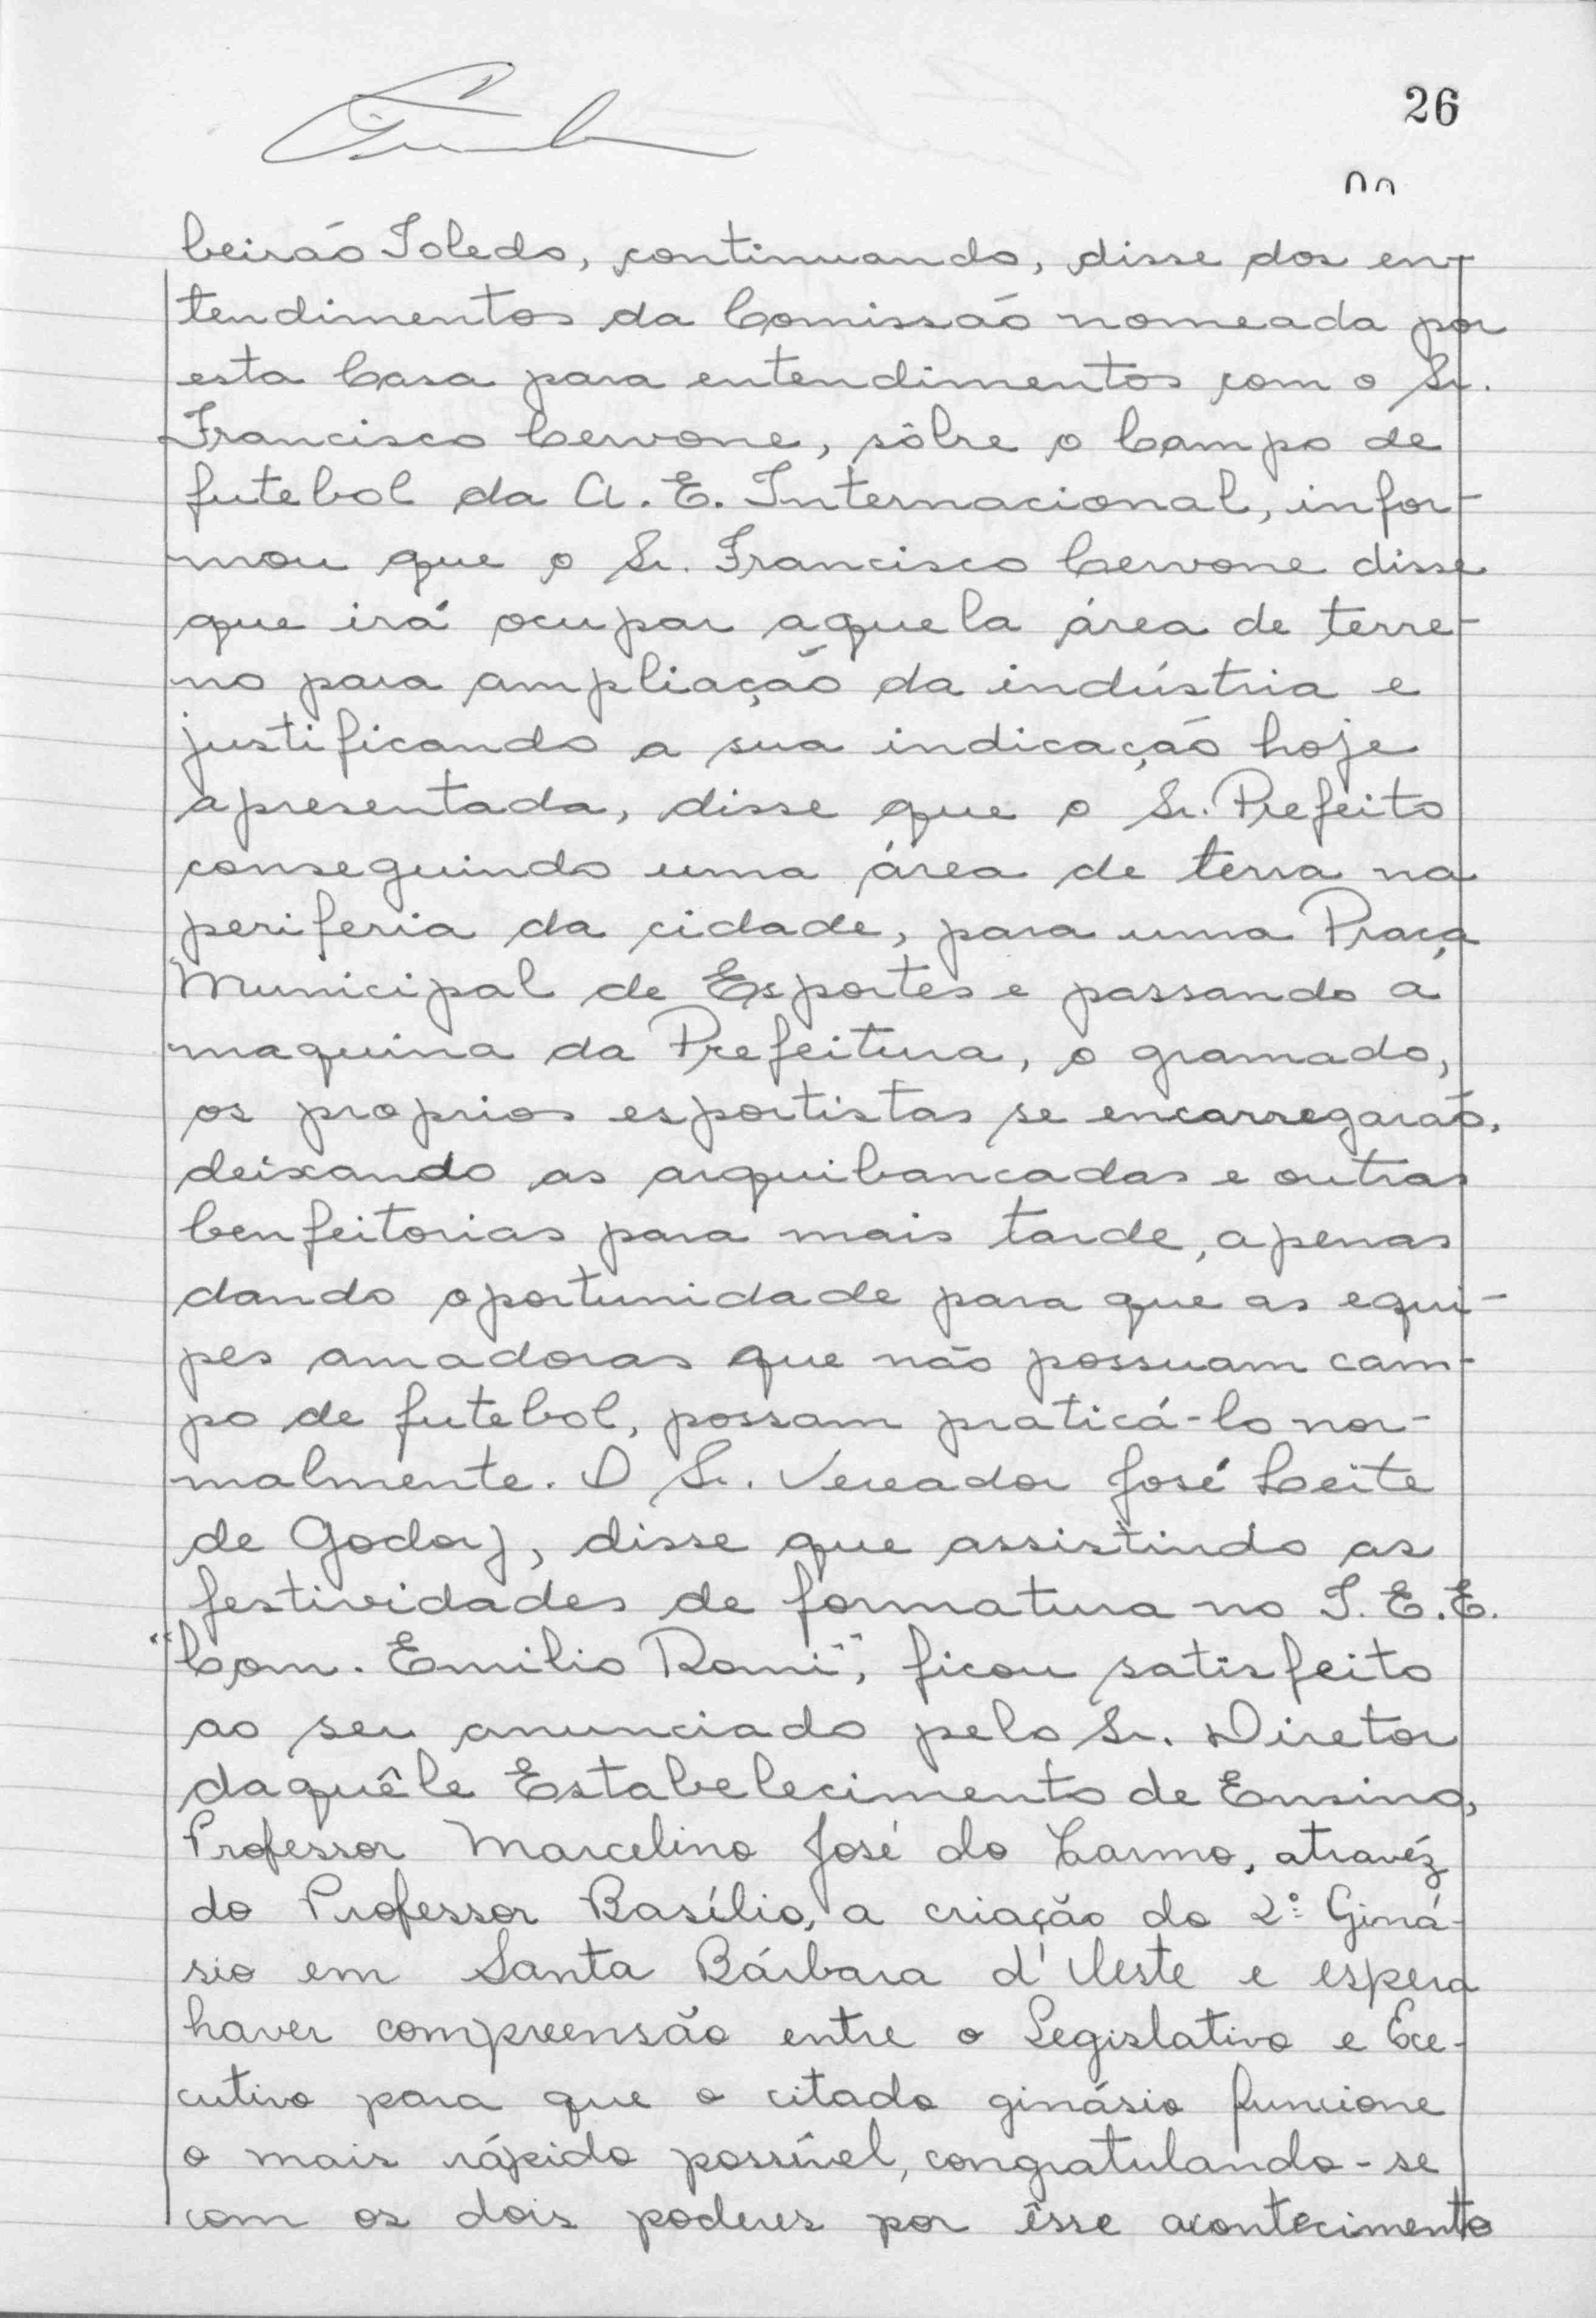 26
beirão Toledo, continuando, disse dos en-
tendimentos da Comissão nomeada por
esta Casa para entendimentos com o Sr.
Francisco Cervone, sôbre o Campo de
futebol da A. E. Internacional, infor-
mou que o Sr. Francisco Cervone disse
que irá ocupar aquela área de terre-
no para ampliação da indústria e
justificando a sua indicação hoje
apresentada, disse que o Sr. Prefeito
conseguindo uma área de terra na
periferia da cidade, para uma Praça
Municipal de Esportes e passando a
maquina da Prefeitura, o gramado,
os proprios esportistas se encarregarão,
deixando as arquibancadas e outras
benfeitorias para mais tarde, apenas
dando oportunidade para que as equi-
pes amadoras que não possuam cam-
po de futebol, possam praticá-lo nor-
malmente. O Sr. Vereador José Leite
de Godoy, disse que assistindo as
festividades de formatura no I. E. E.
"Com. Emilio Romi", ficou satisfeito
ao ser anunciado pelo Sr. Diretor
daquêle Estabelecimento de Ensino,
Professor Marcelino José do Carmo, atravéz
do Professor Basílio, a criação do 2º Giná-
sio em Santa Bárbara d'Oeste e espera
haver compreensão entre o Legislativo e Exe-
cutivo para que o citado ginásio funcione
o mais rápido possível, congratulando-se
com os dois poderes por êsse acontecimento